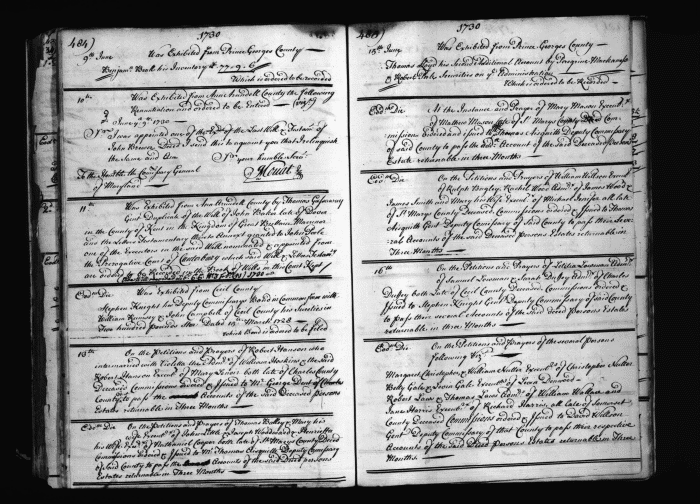 484)
1730
9th June
Was Exhibited from Prince Georges County
Benjamn Beall his Inventory £ 77..9..6
Which is ordered to be recorded
10th
Was Exhibited from Ann Arundell County the following
Renuntiation and ordered to be Entred
June 9th 1730
I was appointed one of the of the Last Will & Testamt of
John Brewer Decd I send this to acquaint you that I relinquish
the same and am
Sr your humble Servt
To the Honble the Comissary General
of Maryland
11th
Was Exhibited from Ann Arundell County by Thomas Gassaway
Gent Duplicate of the Will of John Baker late of Dover
in the County of Kent in the Kingdom of Great Brittain Marriner
and the Letters Testamentary thereto Annext granted to John
one of the Executors in the said Will nominated & appointed from
the Prerogative Court of Canterbury which said Will & Testamt
are entred in the Book of Wills in this Court
Eod Die
Was Exhibited from Cecil County
Stephen Knight his Deputy Commissarys Bond in Common form with
William Rumsey & John Campbell of Cecil County his Sureties in
Two hundred pounds Dated 13th March 1728
Which Bond is ordered to be filed
13th
On the Petitions and Prayers of Robert Hanson who
intermarried with Violetta the of William Hoskins & the said
Robert Hanson Execr of Mary both late of Charles County
Deceased Commissions ordered & Issued to Mr George Dent of Charles
County to pass the Accounts of the said Deceased Persons
Estates returnable in Three Months
Eod Die
On the Petitions and Prayers of Thomas and Mary his
wife Execrs of John and Joseph Woodward & Henrietta
his Wife of Michael both late of St Marys County Deceased
Commissions Ordered & Issued to Mr Thomas Aisquith Deputy Commissary
of said County to pass the Accounts of the said Deceased persons
Estates returnable in Three Months
485)
1730
15th June
Was Exhibited from Prince Georges County
Thomas Lloyd his Second Additional Account by Peregrine Mackaness
& Robert Pate Sureties on ye Administration
Which is ordered to be Recorded
Eod Die
At the Instance and Prayer of Mary Mason Executrx
of Mathew Mason late of St Marys County Deceased Com
missions Ordered and Issued to Thomas Aisquith Deputy Commissary
of said County to pass the Account of the said Deceased Persons
Estate returnable in Three Months
Eod Die
On the Petitions and Prayers of William Wilson Execr
of Ralph Bagley, Rachel Wood Admx of James Wood &
James Smith and Mary his Wife Execrx of Michael late all
of St Marys County Deceased Commissions ordered & Issued to Thomas
Aisquith Gent Deputy Commissary of said County to pass their Seve
ral Accounts of the said Deceased Persons Estates returnable in
Three Months
16th
On the Petitions and Prayers of Letitia Lowman Admx
of Samuel Lowman & Sarah Duffey Admx of Charles
Duffey both late of Cecil County Deceased Commissions ordered &
Issued to Stephen Knight Gent Deputy Commissary of said County
to pass their several Accounts of the said Deced Persons Estates
returnable in three Months
Eod Die
On the Petitions and Prayers of the several Persons
following Vizt
Margaret Christopher & William Nutter Execrs of Christopher Nutter
Betty Gale & Levin Gale Execrs of
Robert Laws & Thomas Laws Admrs of William Wallace and
Jane Harris Execrx of Richard Harris all late of Somerset
County Deceased Commissions ordered & Issued to David Wilson
Gent Deputy Commissary of that County to pass their respective
Accounts of the said Deced Persons Estates returnable in Three
Months